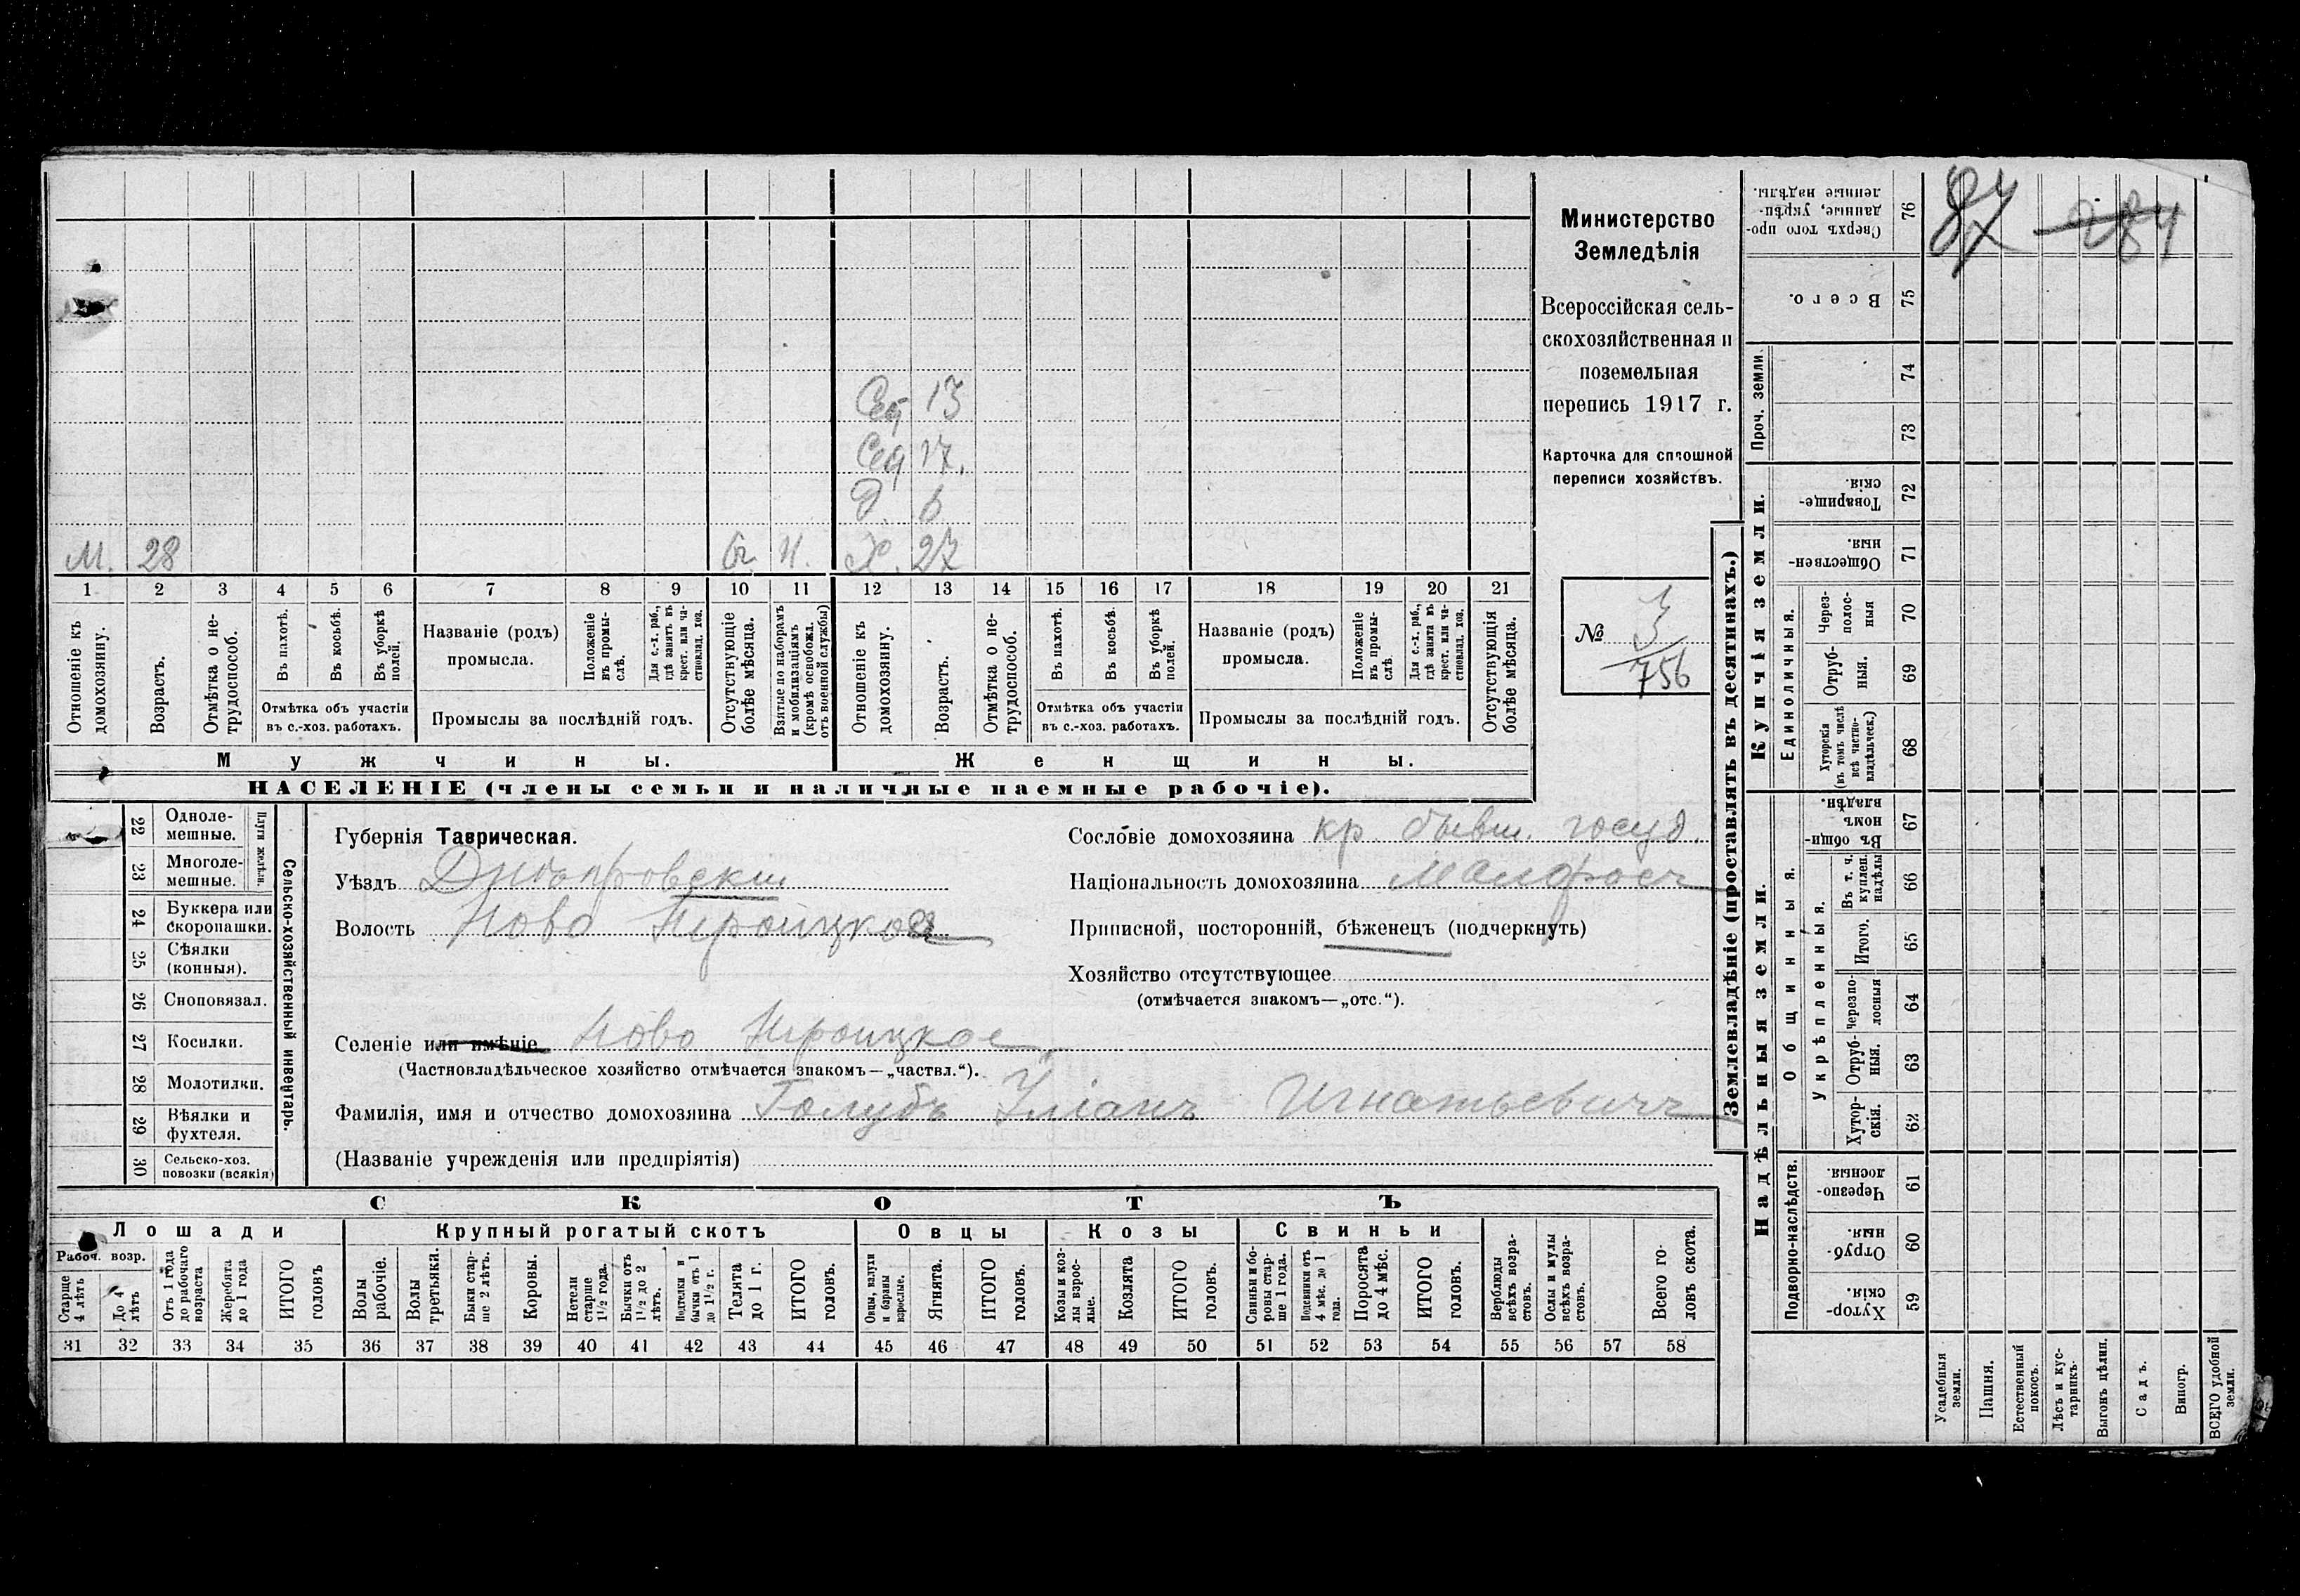 Министерство
Земледѣлія
Всероссійская сель-
скохозяйственная и
поземельная
перепись 1917 г.
Карточка для сплошной
переписи хозяйствъ.
№ 3
756
87 284
Сѣд 13
Сед 17.
Д 6
М. 28 Х. 27
1 2 3 4 5 6 7 8 9 10 11 12 13 14 15 16 17 18 19 20 21
Отношеніе къ домохозяину.
Возрастъ.
Отмѣтка о не-трудоспособ.
Въ пахотѣ.
Въ косьбѣ.
Въ уборкѣ полей.
Отмѣтка объ участіи въ с.-хоз. работахъ.
Названіе (родъ) промысла.
Положеніе въ промы-слѣ.
Для с.-х. раб., гдѣ занятъ въ крест. или ча-стновлад. хоз.
Промыслы за послѣдній годъ.
Отсутствующіе болѣе мѣсяца.
Взятые по наборамъ и мобилизаціямъ (кромѣ освобожд. отъ военной службы)
Отношеніе къ домохозяину.
Возрастъ.
Отмѣтка о не-трудоспособ.
Въ пахотѣ.
Въ косьбѣ.
Въ уборкѣ полей.
Отмѣтка объ участіи въ с.-хоз. работахъ.
Названіе (родъ) промысла.
Положеніе въ промы-слѣ
Для с.-х. раб., гдѣ занята въ крест. или ча-стновлад. хоз.
Промыслы за послѣдній годъ.
Отсутствующія болѣе мѣсяца.
Мужчины.
Женщины.
НАСЕЛЕНІЕ (члены семьи и наличные наемные рабочіе).
Сельско-хозяйственный инвентарь.
Плуги желѣзн.
22 Одноле-мешные.
23 Многоле-мешные.
24 Буккера или скоропашки.
25 Сѣялки (конныя).
26 Сноповязал.
27 Косилки.
28 Молотилки.
29 Вѣялки и фухтеля.
30 Сельско-хоз. повозки (всякія)
Губернія Таврическая.
Уѣздъ Днѣпровскій
Волость Ново Троицкая
Селеніе или имѣніе Ново Троицкое
(Частновладѣльческое хозяйство отмѣчается знакомъ—„частвл.“).
Фамилія, имя и отчество домохозяина Голубъ Уліанъ Игнатьевичъ
(Названіе учрежденія или предпріятія)
Сословіе домохозяина кр. бывш. госуд.
Національность домохозяина Малоросъ
Приписной, посторонній, бѣженецъ (подчеркнуть)
Хозяйство отсутствующее
(отмѣчается знакомъ—„отс.“).
СКОТЪ
Лошади
Крупный рогатый скотъ
Овцы
Козы
Свиньи
Рабоч. возр.
Старше 4 лѣтъ
До 4 лѣтъ
Отъ 1 года до рабочаго возраста
Жеребята до 1 года
ИТОГО головъ
Волы рабочіе.
Волы третьяки.
Быки стар-ше 2 лѣтъ.
Коровы.
Нетели старше 1½ года.
Бычки отъ 1½ до 2 лѣтъ.
Подтелки и бычки отъ 1 до 1½ г.
Телята до 1 г.
ИТОГО головъ.
Овцы, валухи и бараны взрослые.
Ягнята.
ИТОГО головъ.
Козы и коз-лы взрос-лые.
Козлята
ИТОГО головъ.
Свиньи и бо-ровы стар-ше 1 года.
Подсвинки отъ 4 мѣс. до 1 года.
Поросята до 4 мѣс.
ИТОГО головъ.
Верблюды всѣхъ возра-стовъ.
Ослы и мулы всѣхъ возра-стовъ.
Всего го-ловъ скота.
31 32 33 34 35 36 37 38 39 40 41 42 43 44 45 46 47 48 49 50 51 52 53 54 55 56 57 58
Землевладѣніе (проставлять въ десятинахъ.)
Надѣльныя земли.
Купчія земли.
Проч. земли.
Подворно-наслѣдств.
Общинныя.
Укрѣпленныя.
Единоличныя.
Сверхъ того про-данные, укрѣп-ленные надѣлы. 76
Всего. 75
74
73
Товарище-скія. 72
Обществен-ныя. 71
Через-полос-ныя 70
Отруб-ныя. 69
Хуторскія (въ томъ числѣ всѣ частно-владѣльческ.) 68
Въ общи-номъ владѣн. 67
Въ т. ч. куплен. надѣлы 66
Итого. 65
черезпо-лосныя 64
Отруб-ныя. 63
Хутор-скія. 62
Черезпо-лосныя 61
Отруб-ныя. 60
Хутор-скія. 59
Усадебныя земли.
Пашня.
Естественный покосъ.
Лѣсъ и кус-тарникъ.
Выгонъ цѣлин.
Садъ.
Виногр.
ВСЕГО удобной земли.